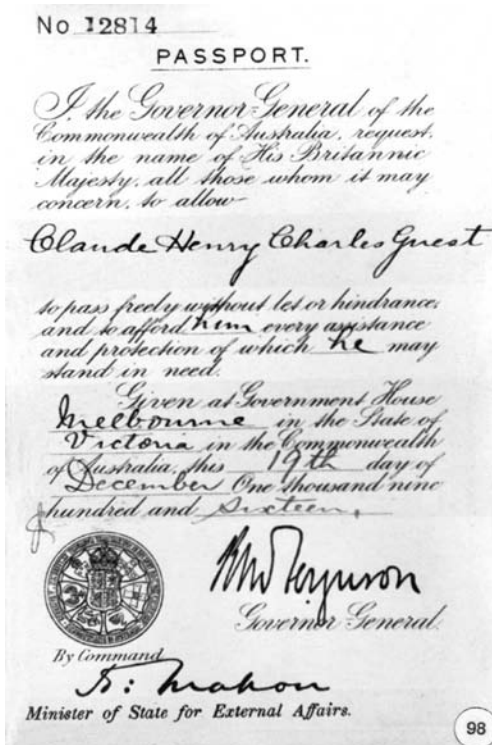 No 12814
PASSPORT.
I, the Governor-General of the
Commonwealth of Australia, request,
in the name of His Britannic
Majesty, all those whom it may
concern, to allow
Claude Henry Charles Guest
to pass freely without let or hindrance,
and to afford him every assistance
and protection of which he may
stand in need.
Given at Government House
Melbourne in the State of
Victoria in the Commonwealth
of Australia, this 19th day of
December One thousand nine
hundred and sixteen.
Ferguson
Governor-General.
By Command
Mahon
Minister of State for External Affairs.
98